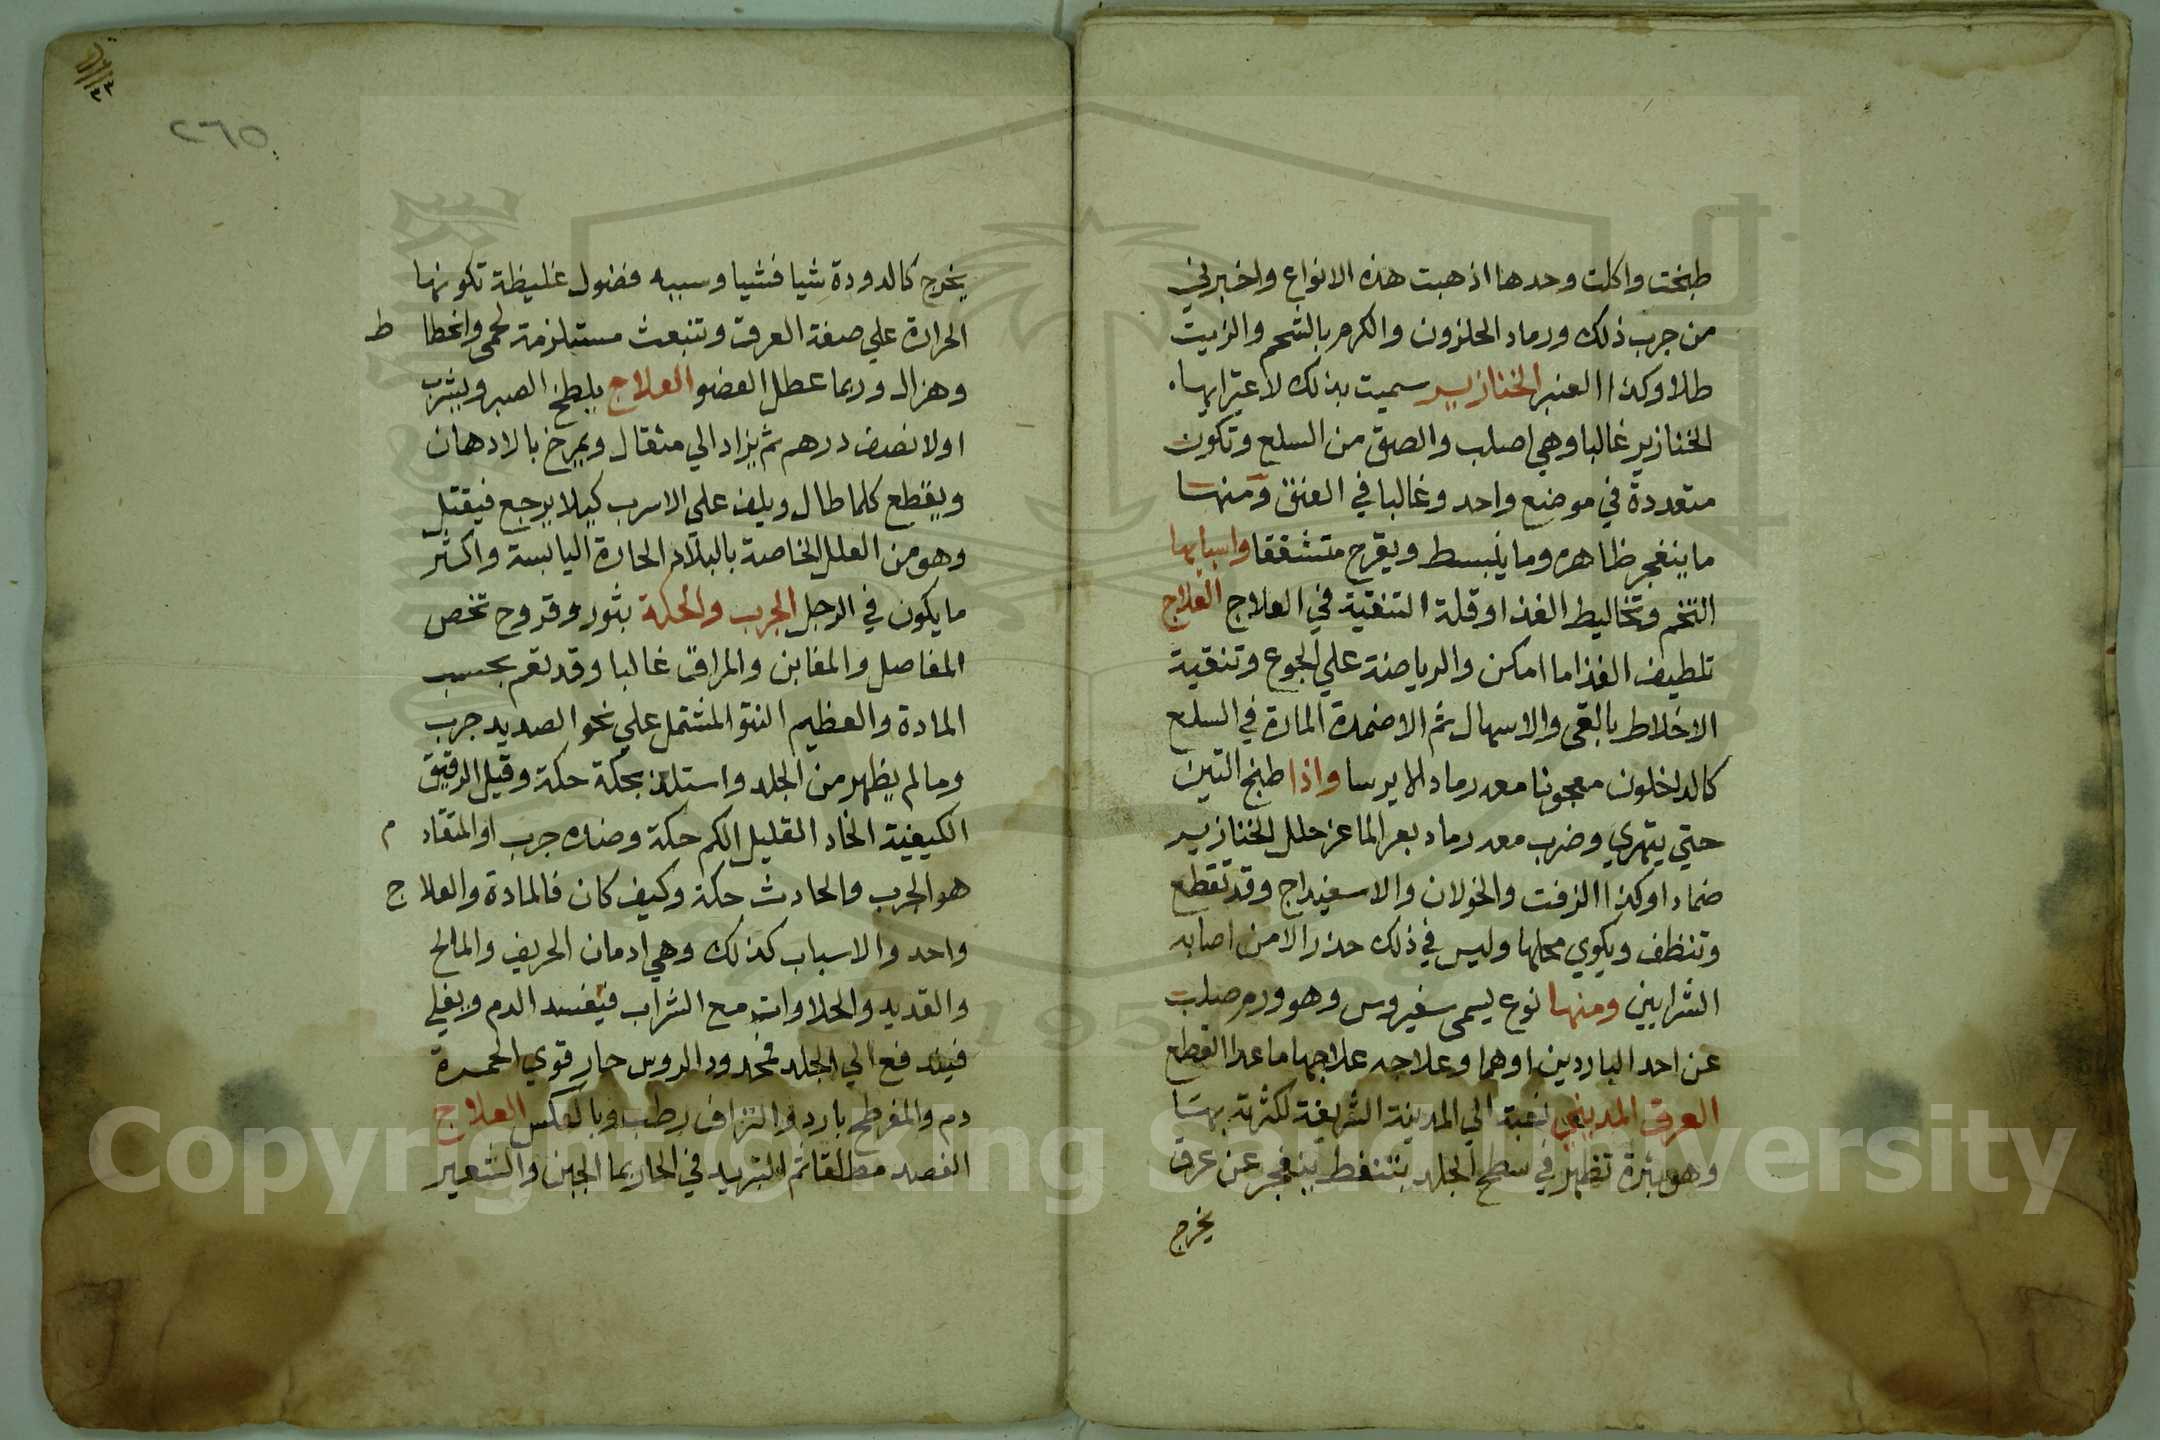 طبخت واكلت وحدها اذهبت هذه الانواع واخبرني
من جرب ذلك ورماد الحلزون والكرم بالشحم والزيت
طلا وكذا العنبر الخنازير سميت بذلك لاعترايها
الخنازير غالبا وهي اصلب والصق من السلع وتكون
متعددة في موضع واحد وغالبا في العنق ومنها
ما ينفجر ظاهره وما ينبسط ويقرح متشققا واسبابها
التخم وتخاليط الغذا وقلة التنقية في العلاج العلاج
تلطيف الغذا ما امكن والرياضة علي الجوع وتنقية
الاخلاط بالقي والاسهال ثم الاضمدة المارة في السلع
كالداخلون معجونا معه رماد الايرسا واذا طبخ التين
حتي يتهري وضرب معه رماد بعر الماعز حلل الخنازير
ضمادا وكذا الزفت والخولان والاسفيداج وقد تقطع
وتنظف ويكوي محلها وليس في ذلك حذر الا من اصابه
الشرايين ومنها نوع يسمي سفيروس وهو ورم صلب
عن احد الباردين اوهما وعلاجه علاجها ما عدا القطع
العرق المديني نسبة الي المدينة الشريفة لكثرته بها
وهو بثرة تظهر في سطح الجلد يتنفط ينفجر عن عرق
يخرج
٢٦٥
يخرج كالدودة شيا فشيا وسببه فضول غليظة تكونها
الحرارة علي صفة العرق وتنبعث مستلزمة لحمي وانحطا ط
وهزال وربما عطل العضو العلاج يلطخ الصبر ويشرب
اولا نصف درهم ثم يزاد الي مثقال ويمرخ بالادهان
ويقطع كلما طال ويلف علي الاسرب كيلا يرجع فيقتل
وهو من العلل الخاصة بالبلاد الحارة اليابسة واكثر
ما يكون في الرجل الجرب والحكة بثور وقروح تخص
المفاصل والمغابن والمراق غالبا وقد تعم بحسب
المادة والعظيم النتو المشتمل علي نحو الصديد جرب
وما لم يظهر من الجلد واستلذ بحكة حكة وقيل الرقيق
الكيفية الحاد القليل الكم حكة وضده جرب او المتقاد م
هو الجرب والحادث حكة وكيف كان فالمادة والعلا ج
واحد والاسباب كذلك وهي ادمان الحريف والمالح
والقديد والحلاوات مع الشراب فيفسد الدم ويغلي
فيندفع الي الجلد فمحدود الروس حار قوي الحمرة
دم والمفرطح بارد والنزاف رطب وبالعكس العلاج
الفصد مطلقا ثم التبريد في الحار بما الجبن والشعير
Copyright © King Saud University